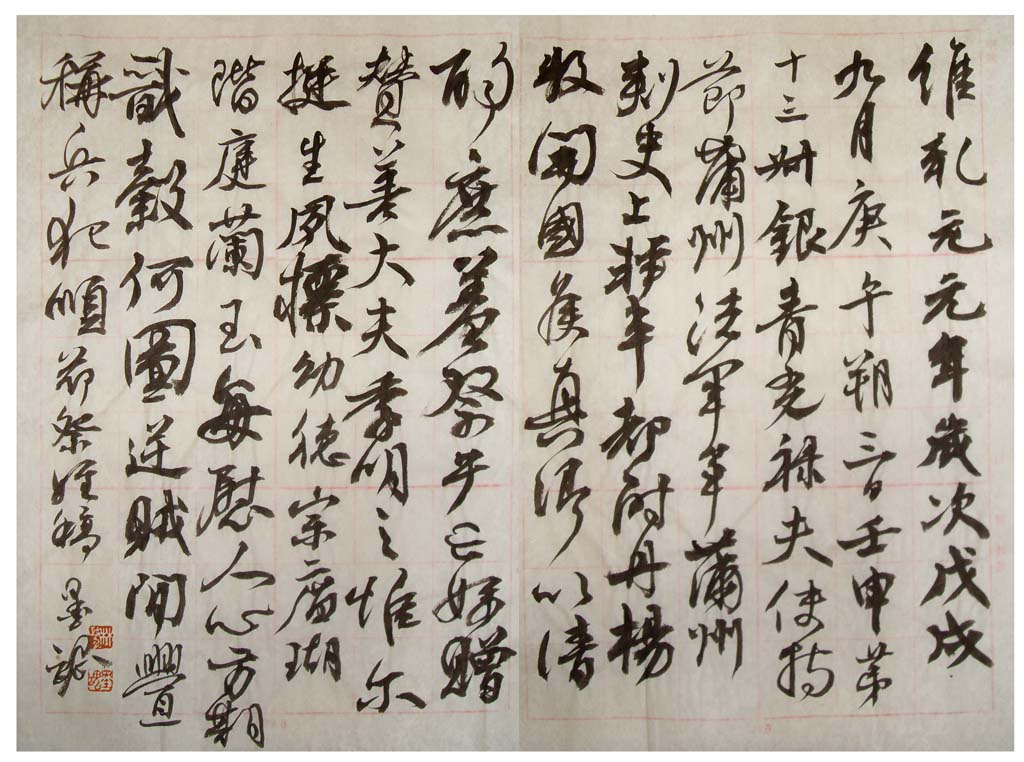 維乾元元年歲次戊戌
九月庚午朔三日壬申第
十三州銀青光祿夫使持
節蒲州諸軍事蒲州
刺史上輕車都尉丹楊
牧開國侯真卿以清
酌庶羞祭于亡姪贈
贊善大夫季明之惟尔
挺生夙標幼德宗廟瑚
階庭蘭玉每慰人心方期
戩穀何圖逆賊閒釁
稱兵犯順節祭姪稿 墨